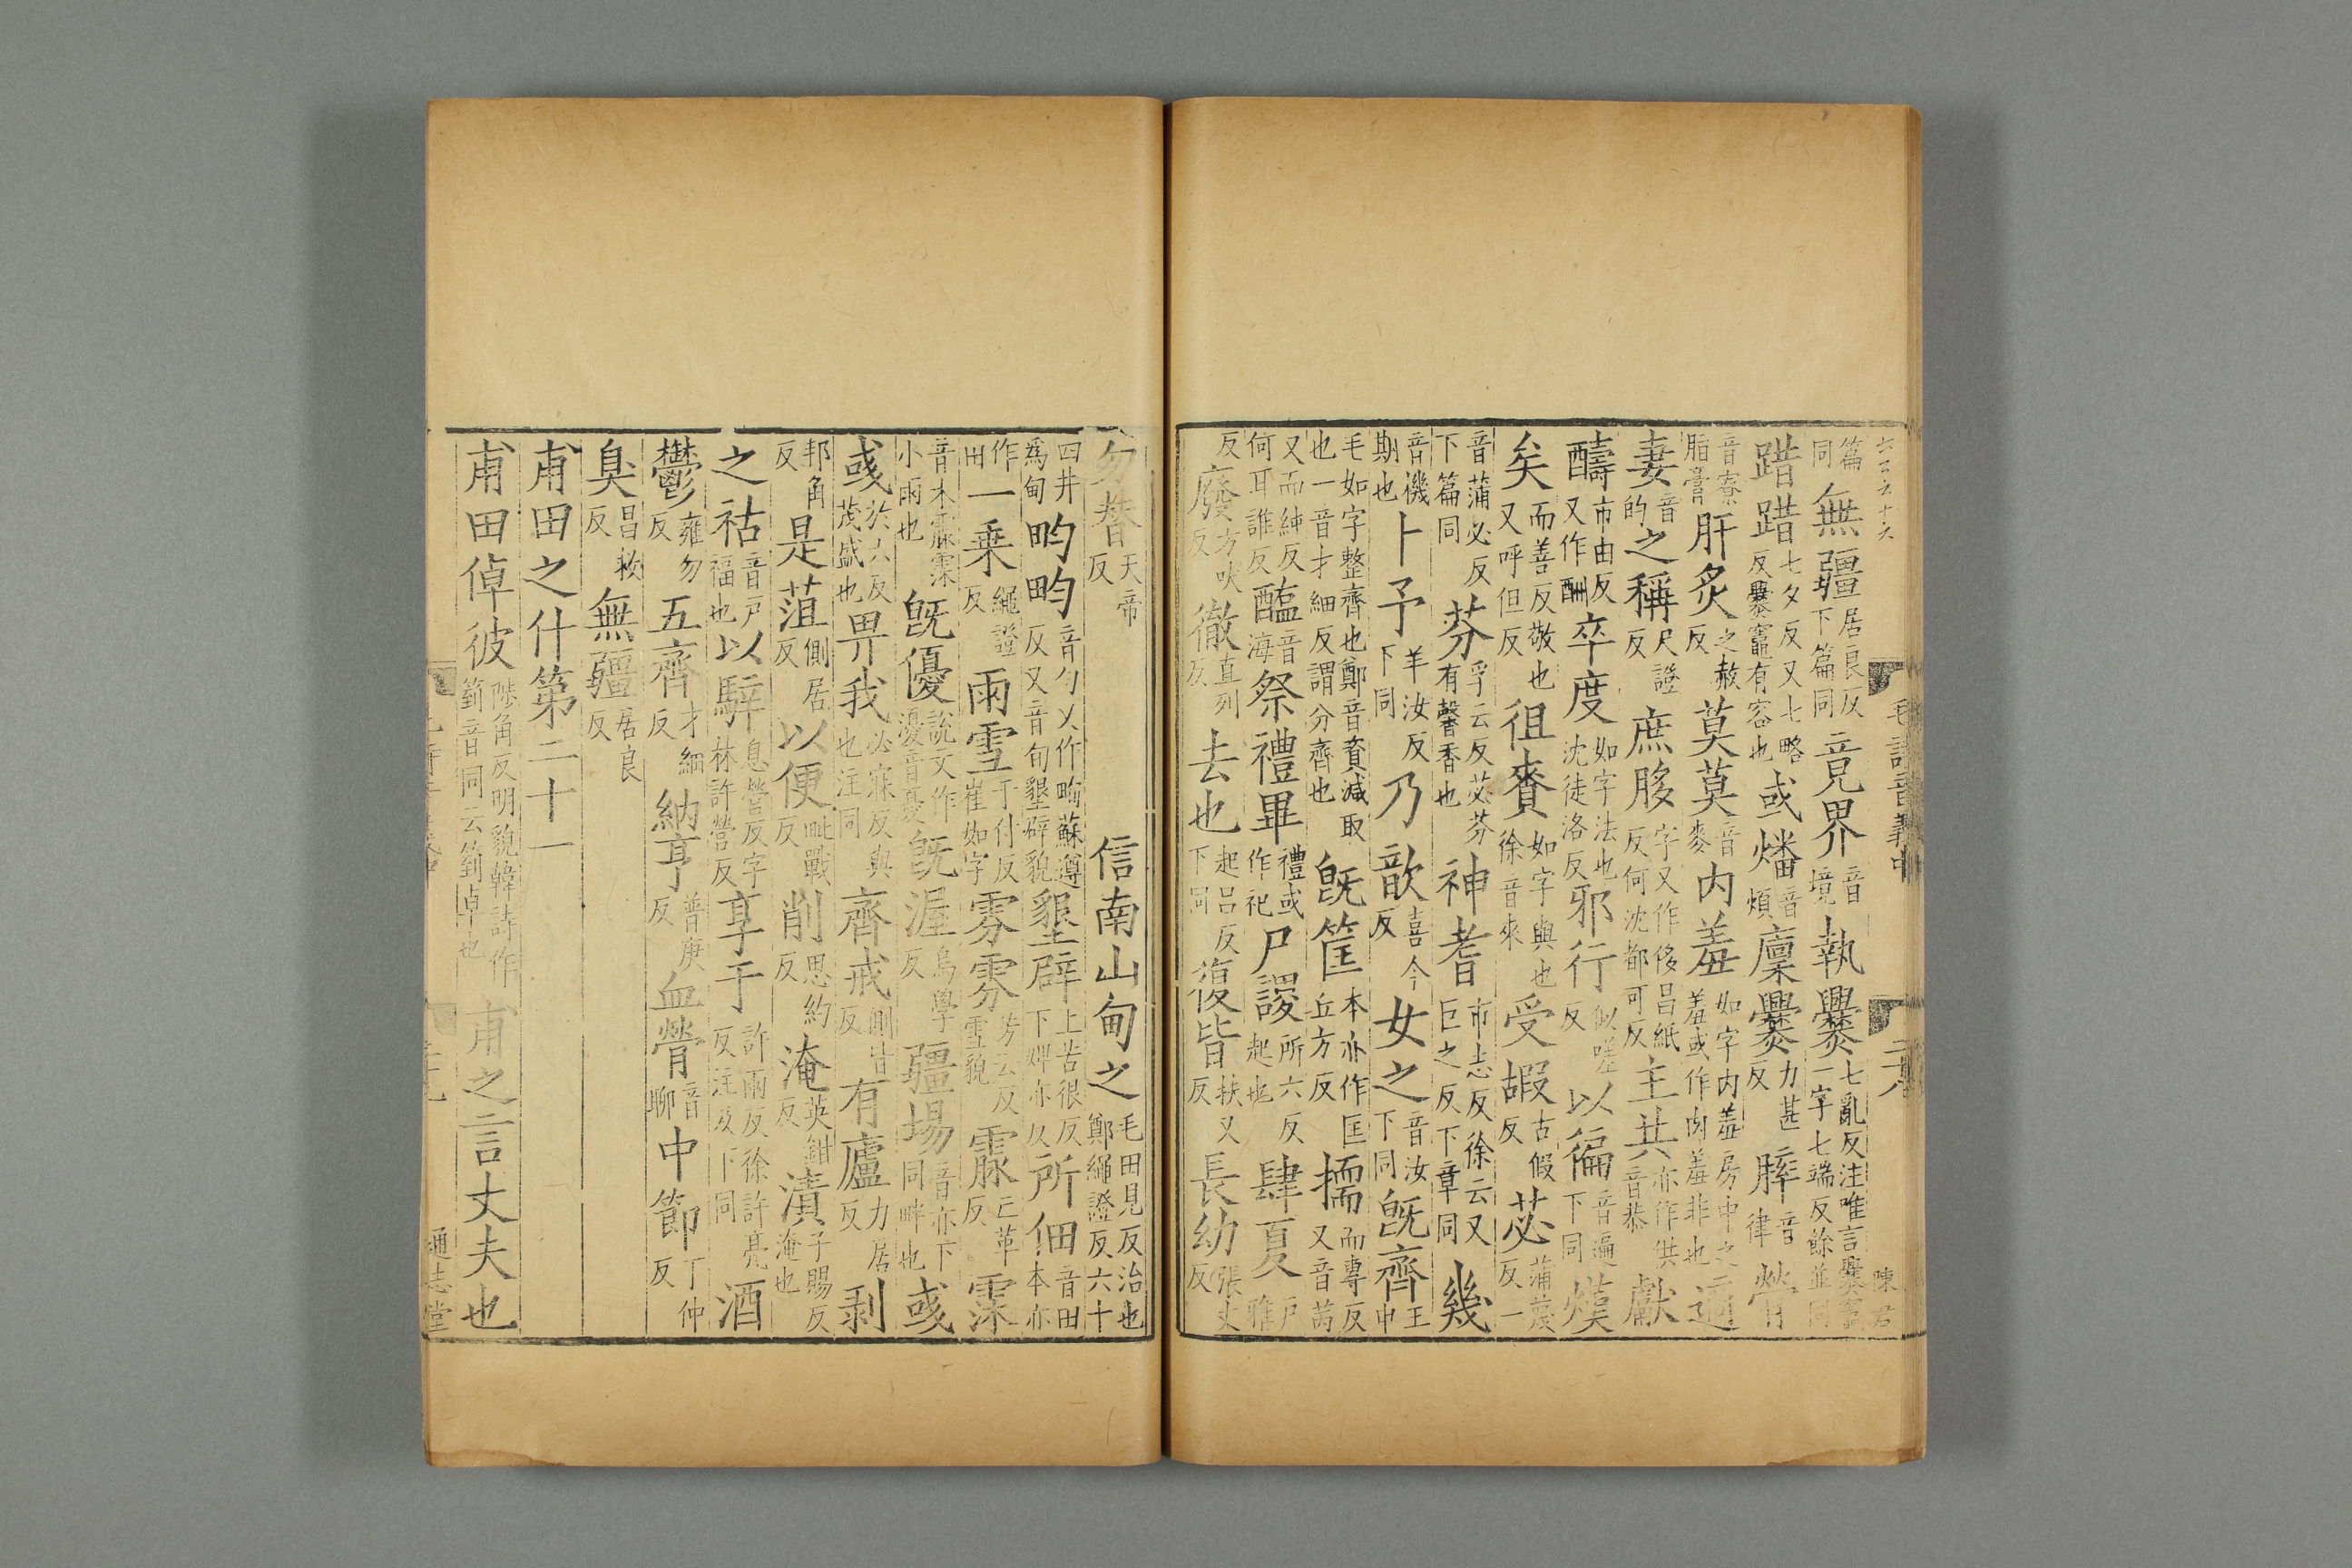 篇同無疆居良反下篇同竟界音境執爨七亂反注唯言爨竈一字七端反餘並同
踖踖七夕反又七略反爨竈有容也或燔音煩廩爨力甚反膟音律膋
音寮脂膏肝炙之赦反莫莫音麥内羞如字内羞房中之羞或作肉羞非也適
妻音的之稱尺證反庶䏧字又作侈昌紙反何沈都可反主共亦作供音恭獻
醻市由反又作酬卒度如字法也沈徒洛反邪行似嗟反以徧音遍下同熯
矣而善反敬也又呼但反徂賚如字與也徐音來受嘏古假反苾蒲蔑反一
音蒲必反下篇同芬孚云反苾芬有馨香也神耆市志反徐云又巨之反下章同幾
音機期也卜予羊汝反下同乃歆喜今反女之音汝下同旣齊王申
毛如字整齊也鄭音資減取也一音才細反謂分齊也旣筐本亦作匡丘方反擩而專反又音芮
又而純反何耳誰反醢音海祭禮畢禮或作祀尸謖所六反起也肆夏戸雅
反廢方吠反徹直列反去也起呂反下同復皆扶又反長幼張丈反
毛詩音義中
二十八
陳君
勿替天帝反信南山甸之毛田見反治也鄭繩證反六十
四井爲甸畇畇音勻又作㽦蘇遵反又音旬墾辟貌墾辟上苦很反下婢亦反所佃音田本亦
作田一乗繩證反雨雪于付反崔如字雰雰芳云反雪貌霢亡革反霂
音木霢霂小雨也旣優說文作瀀音憂旣渥烏學反疆埸音亦下同畔也彧
彧於六反茂盛也畀我必寐反與也注同齊戒側皆反有廬力居反剥
邦角反是菹側居反以便毗戰反削思約反淹英鉗反漬子賜反淹也
之祜音戸福也以騂息營反字林許營反享于許兩反徐許亮反注及下同酒
鬱雍勿反五齊才細反納亨普庚反血膋音聊中節丁仲反
臭昌救反無疆居良反
甫田之什第二十一
甫田倬彼陟角反明貌韓詩作箌音同云箌卓也甫之言丈夫也
通志堂